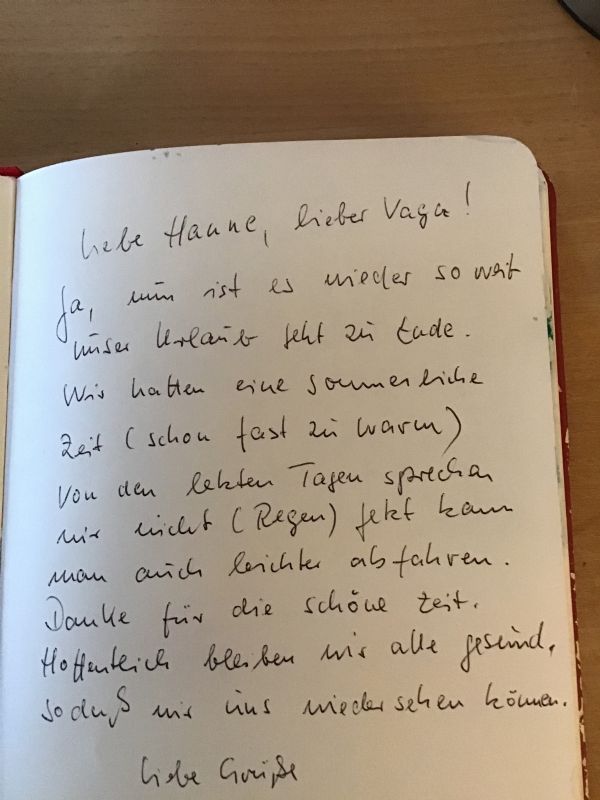 Liebe Hanne, lieber Vagn!
Ja, nun ist es wieder so weit
unser Urlaub geht zu Ende.
Wir hatten eine sommerliche
Zeit (schon fast zu warm)
Von den letzten Tagen sprechen
wir nicht (Regen) jetzt kann
man auch leichter abfahren.
Danke für die schöne Zeit.
Hoffentlich bleiben wir alle gesund,
sodaß wir uns wiedersehen können.
Liebe Grüße